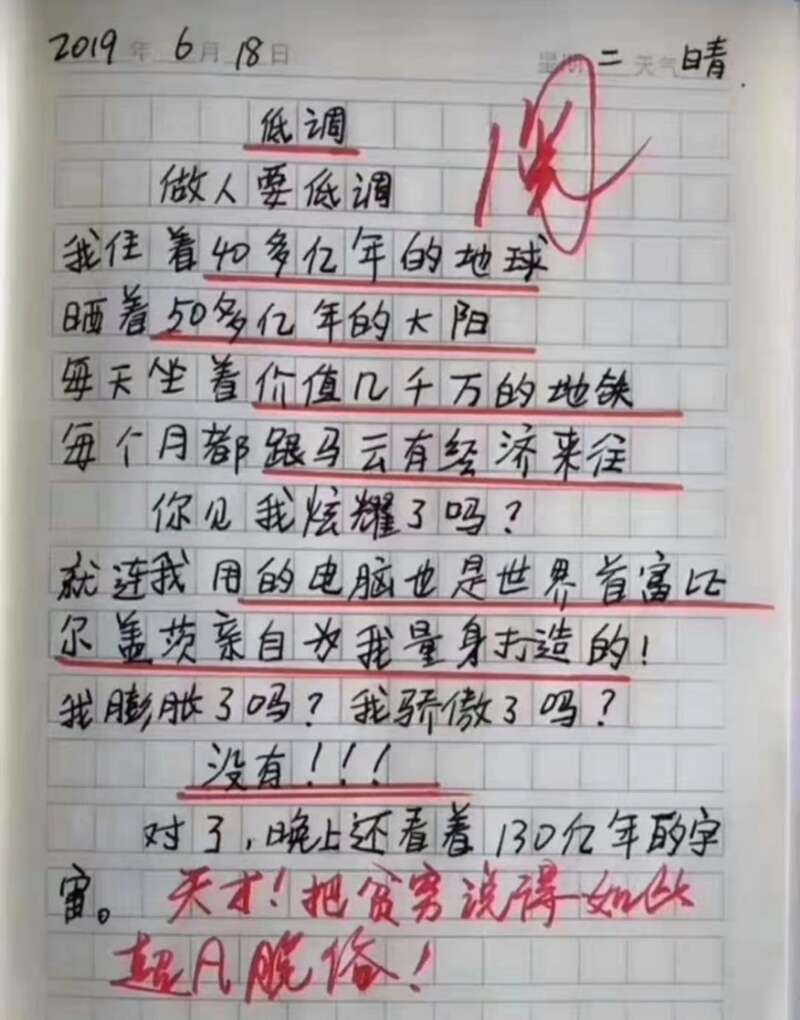 2019年6月18日 星期二 天气 晴
低调
阅
做人要低调
我住着40多亿年的地球
晒着50多亿年的太阳
每天坐着价值几千万的地铁
每个月都跟马云有经济来往
你见我炫耀了吗？
就连我用的电脑也是世界首富比
尔盖茨亲自为我量身打造的！
我膨胀了吗？我骄傲了吗？
没有！！！
对了，晚上还看着130亿年的宇
宙。天才！把贫穷说得如此
超凡脱俗！